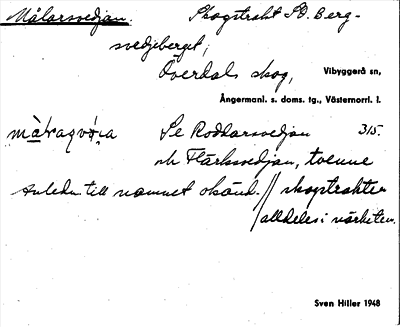 Målarsvedjan. Skogstrakt SO. Berg-
svedjeberget,
Överdals skog, Vibyggerå sn,
Ångermanl. s. doms. tg., Västernorrl. l.
Se Roddarsvedjan 315.
och Flärksvedjan, tvenne
Anleden till namnet okänd. // skogstrakter
alldeles i närheten.
Sven Hiller 1948